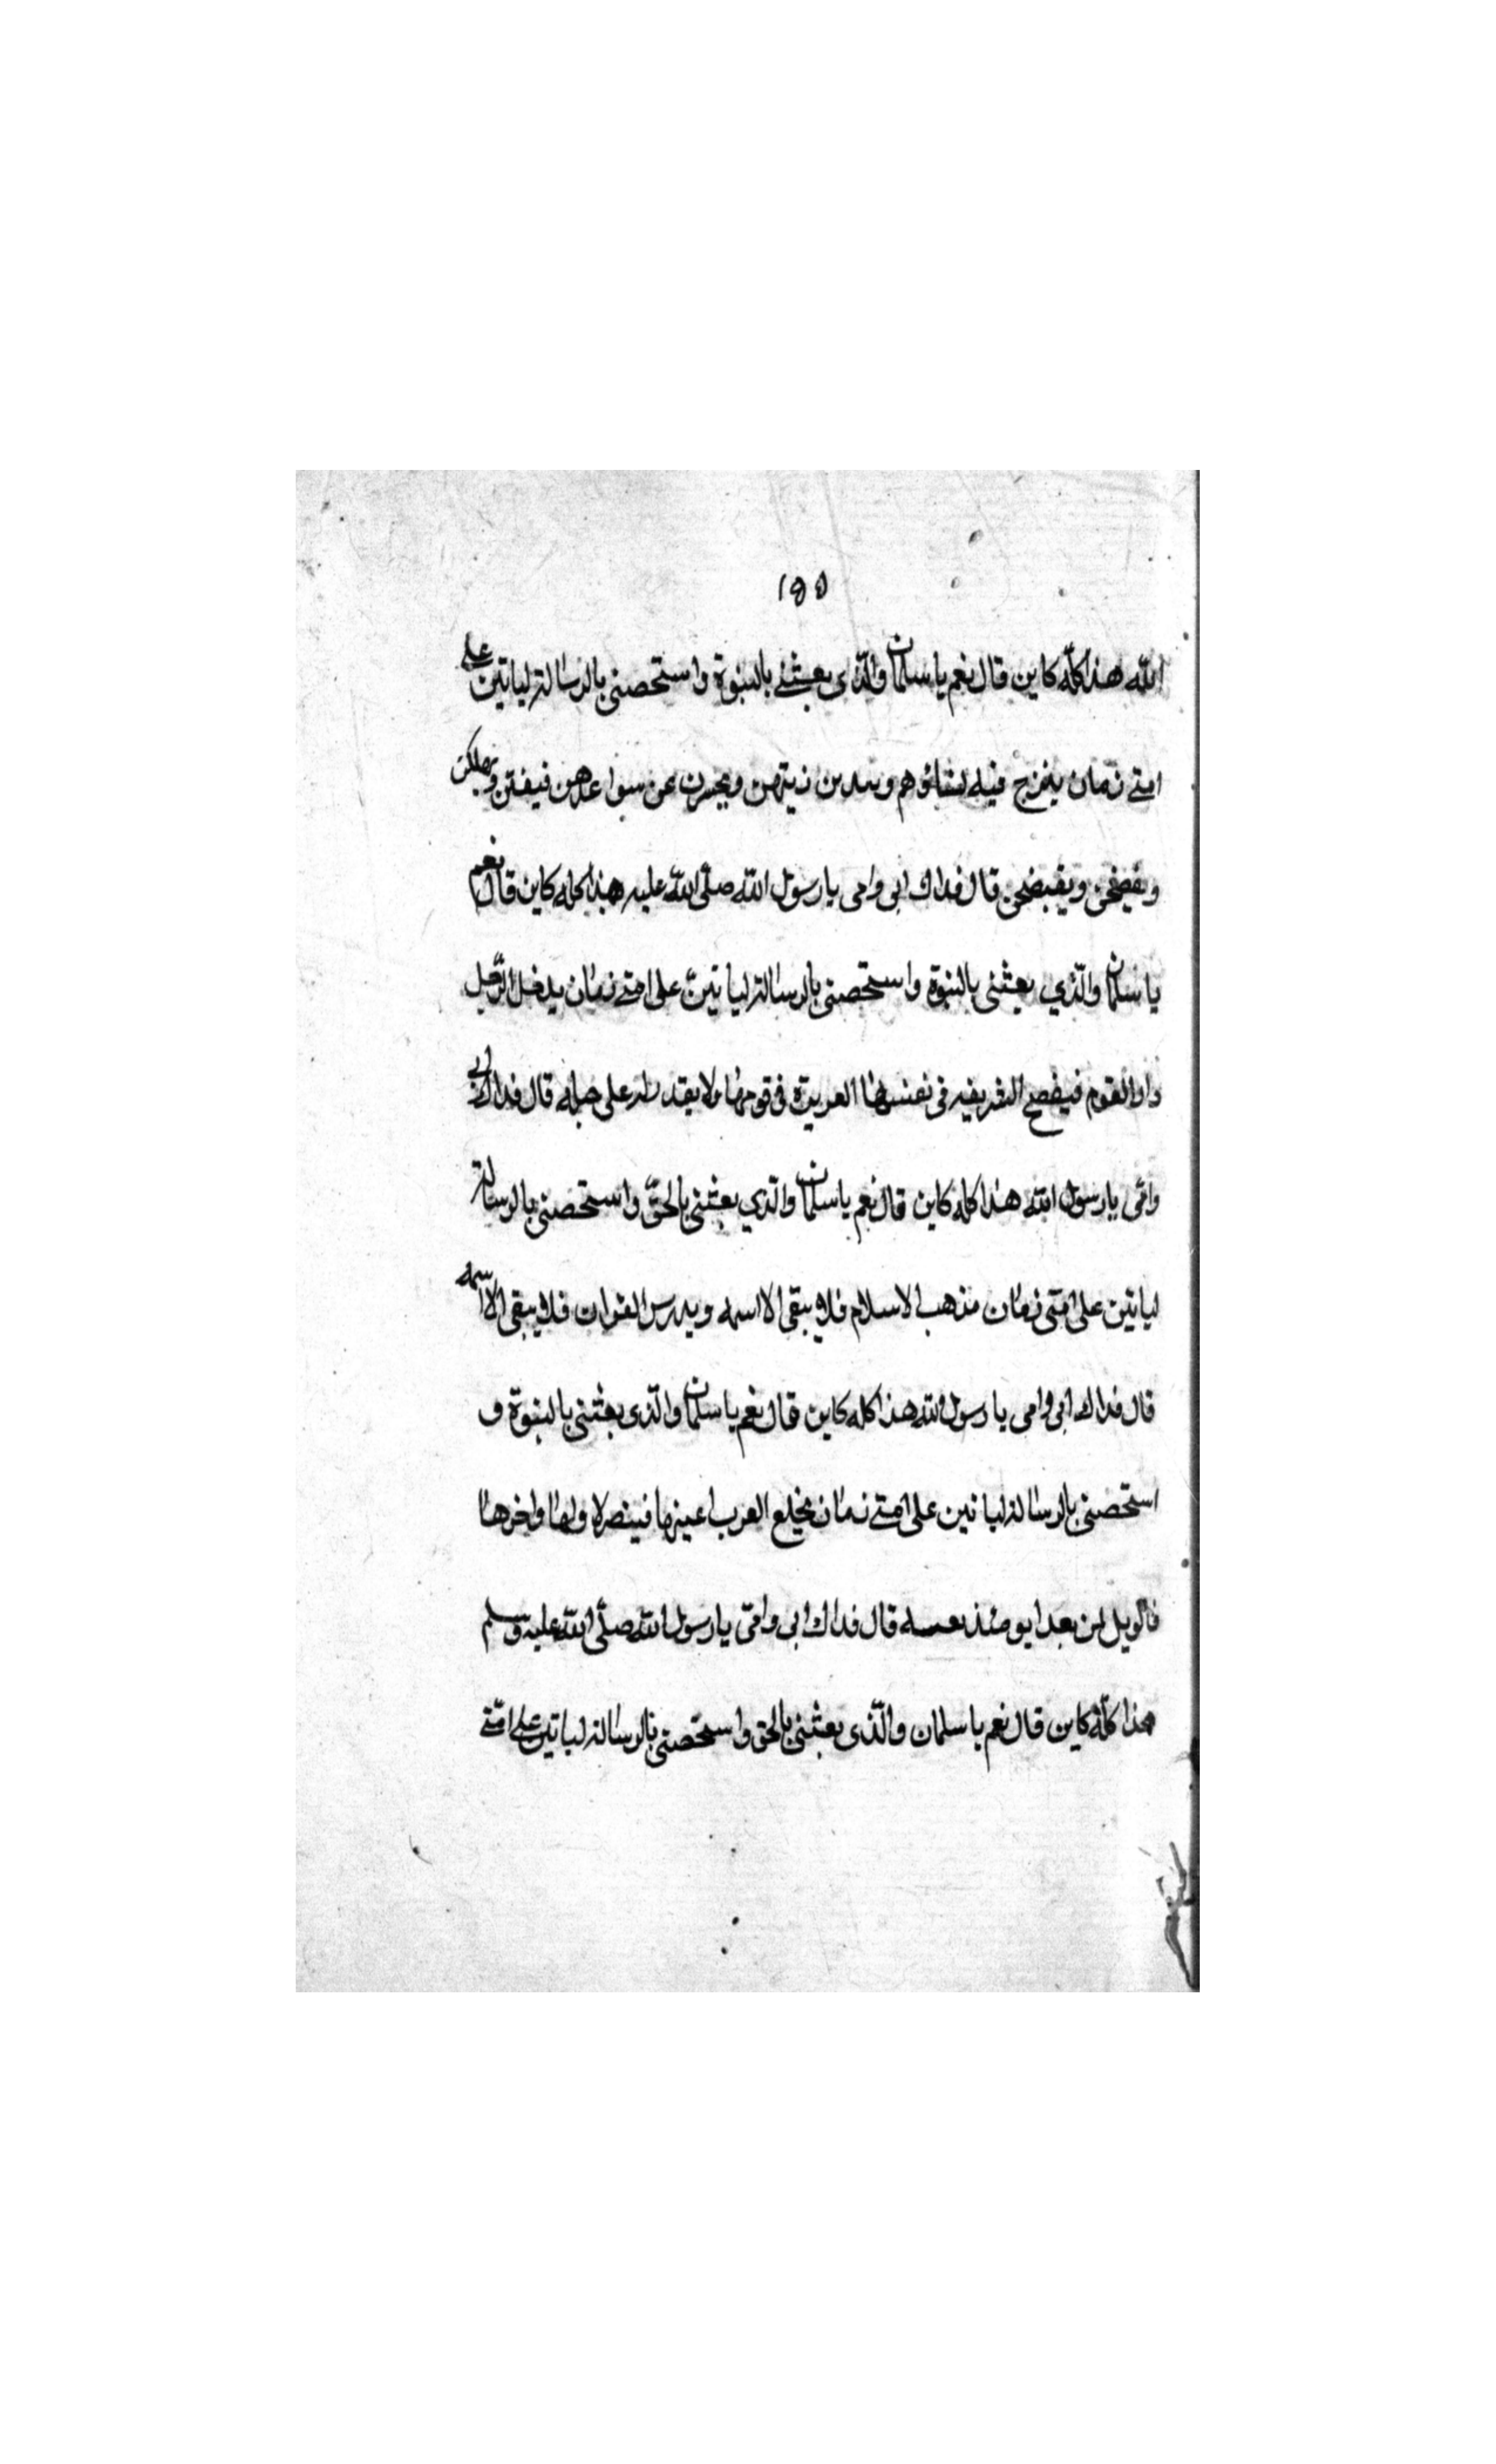 ١٥٥
الله هذا كلّه كاين قال نعم يا سلمان والّذى بعثنے بالنبوة واستحصنى بالرسالة لياتين على
امتے زمان يخرج فيه نساؤهم زينتهن عن سواعدهن فيفتن ويهلكن
قال فداك ابى وامى يا رسول الله صلّى الله عليه هذا كله كاين قال نعم
يا سلمان والّذي بعثنى بالنبوة واستحصنى بالرسالة لياتينّ على امتے زمان يدخل الرّجل
القوم فيفصح فى نفسها العربية فى قومها ولا يقدر على قال فداك ابى
وامّى يا رسول الله هذا كله كاين قال نعم يا سلمان والّذي بعثنى بالحقّ واستحصنى بالرسالة
لياتين على امتى زمان مذهب الاسلام فلا يبقى الا اسمه ويدرس القران فلا يبقى الا اسمه
قال فداك ابى وامى يا رسول الله هذا كله كاين قال نعم يا سلمان والّذى بعثنى بالنبوة و
استحصنى بالرسالة لياتين على امتے زمان يخلع العرب اولها واخرها
فالويل لمن بعد ايومئذ قال فداك ابى وامّى يا رسول الله صلّى الله عليه وسلم
هذا كلّه كاين قال نعم يا سلمان والّذى بعثنى بالحق واستحصنى بالرسالة لياتين على امّتے